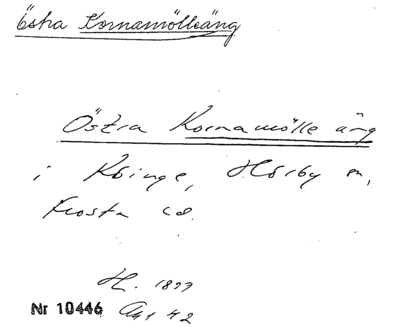 Östra Kornamölleäng
Östra Kornamölle äng
i Köinge, Hörby sn,
Frosta hd.
H. 1899
Nr 10446 Akt 42